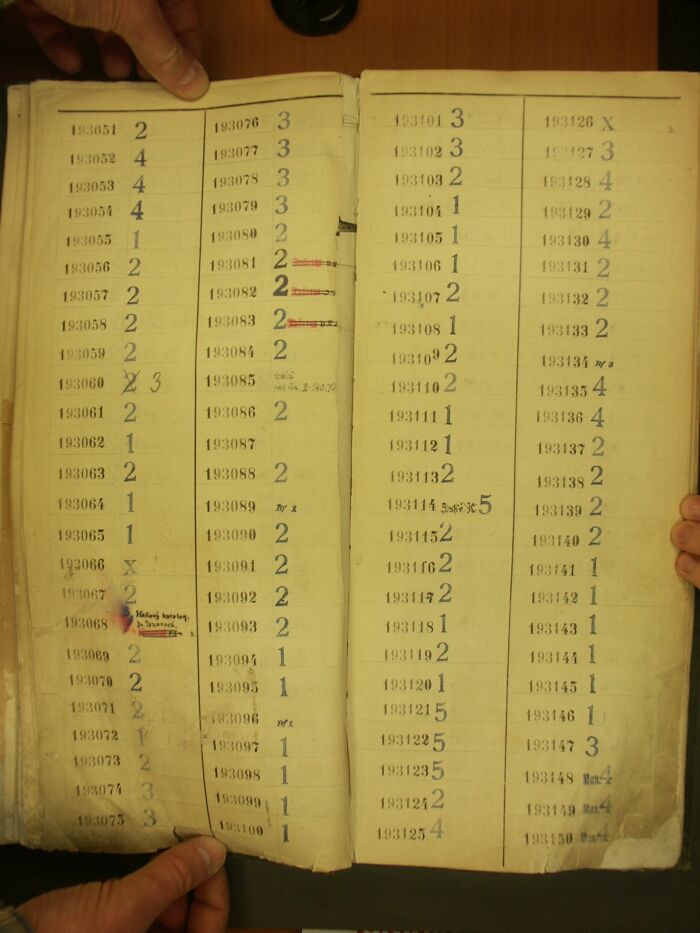 193051 2
193052 4
193053 4
193054 4
193055 1
193056 2
193057 2
193058 2
193059 2
193060 2 3
193061 2
193062 1
193063 2
193064 1
193065 1
193066 x
193067 2
193068
193069 2
193070 2
193071 2
193072 1
193073 2
193074 3
193075 3
193076 3
193077 3
193078 3
193079 3
193080 2
193081 2
193082 2
193083 2
193084 2
193085
193086 2
193087
193088 2
193089
193090 2
193091 2
193092 2
193093 2
193094 1
193095 1
193096
193097 1
193098 1
193099 1
193100 1
193101 3
193102 3
193103 2
193104 1
193105 1
193106 1
193107 2
193108 1
193109 2
193110 2
193111 1
193112 1
193113 2
193114 5
193115 2
193116 2
193117 2
193118 1
193119 2
193120 1
193121 5
193122 5
193123 5
193124 2
193125 4
193126 x
193127 3
193128 4
193129 2
193130 4
193131 2
193132 2
193133 2
193134
193135 4
193136 4
193137 2
193138 2
193139 2
193140 2
193141 1
193142 1
193143 1
193144 1
193145 1
193146 1
193147 3
193148 Mus. 4
193149 Mus. 4
193150 Mus.